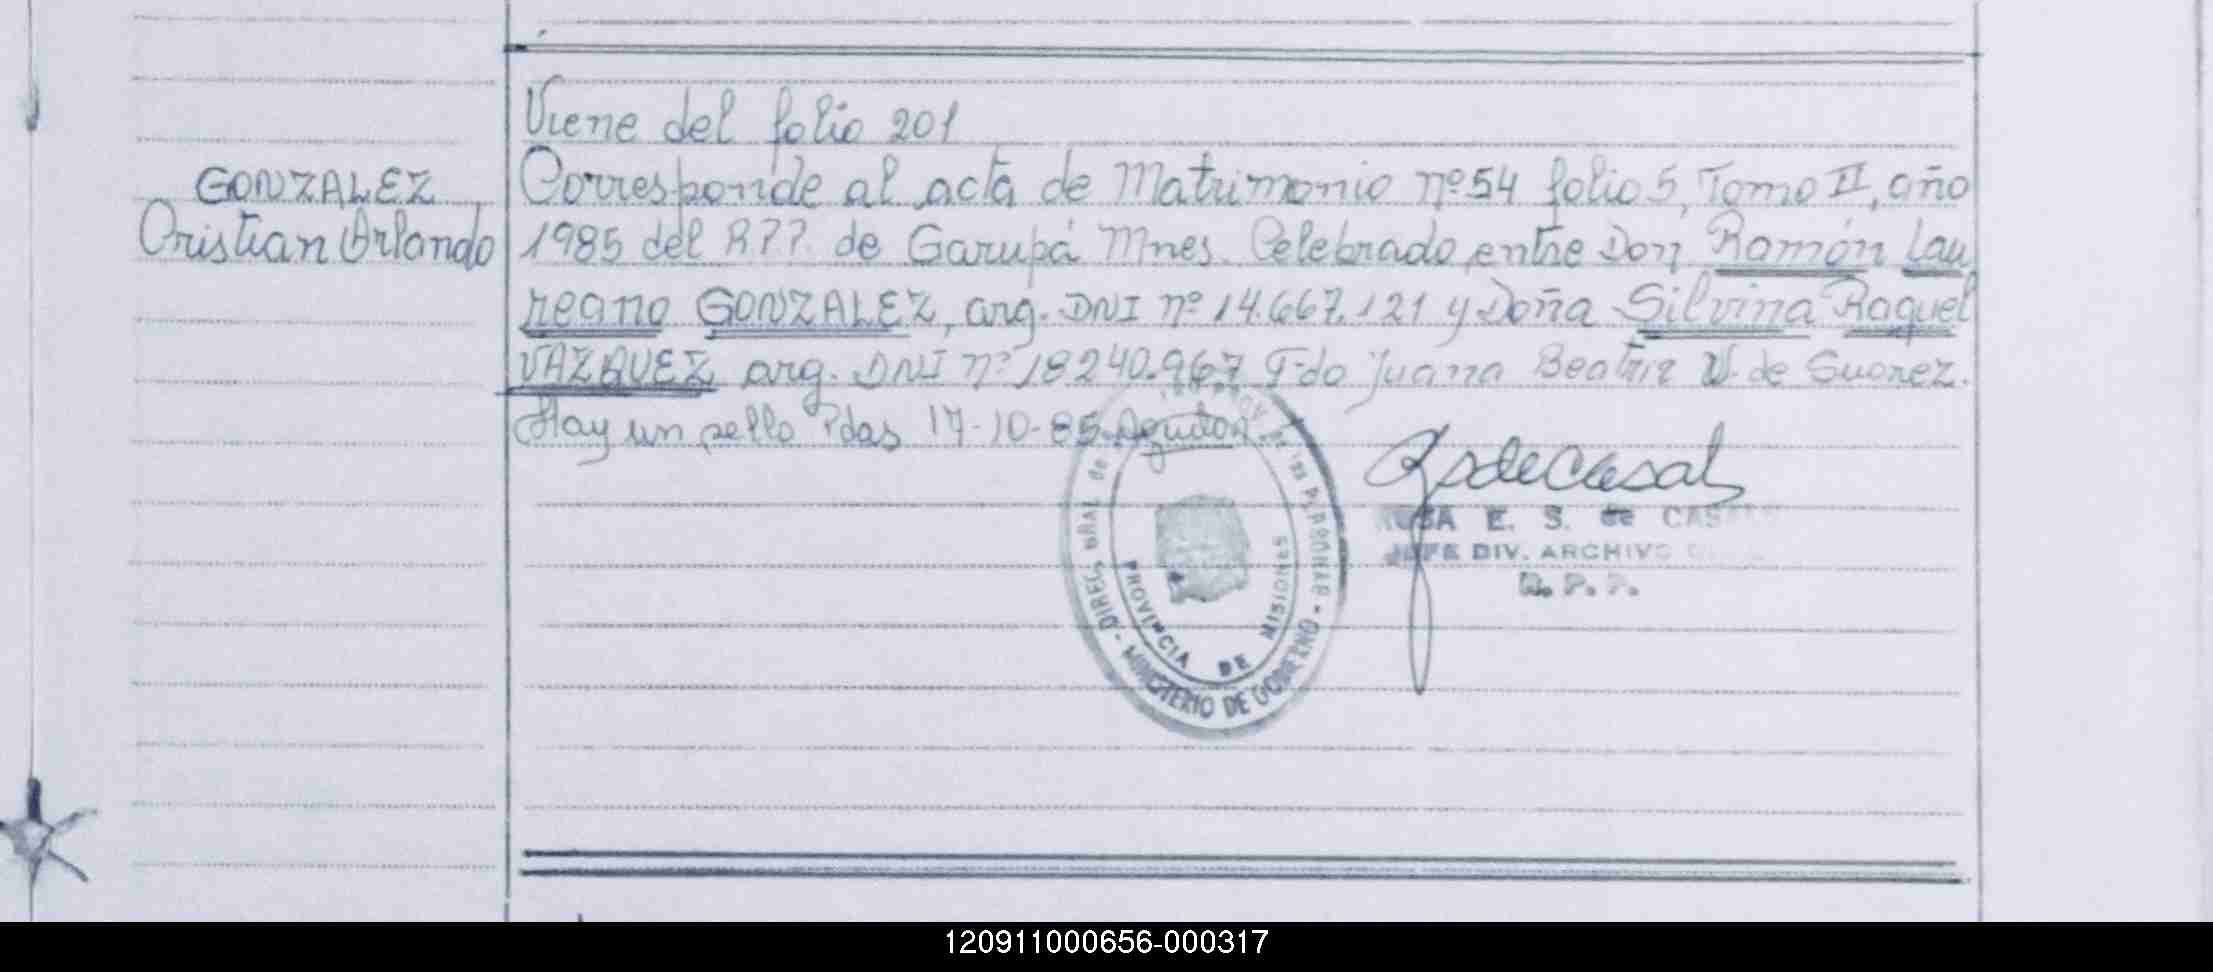 Viene del folio 201
GONZALEZ
Cristian Orlando
Corresponde al acta de Matrimonio nº 54 folio 5, Tomo II, año
1985 del R.P.P. de Garupá Mnes. Celebrado entre Don Ramón Lau
reano GONZALEZ, arg. DNI nº 14.667.121 y Doña Silvina Raquel
VAZQUEZ arg. DNI nº 18240.967 F.do Juana Beatriz V. de Suarez.
Hay un sello Pdas 17-10-85.
RsdeCasal
E. S. de CASAL
JEFE DIV. ARCHIVO
R. P. P.
DIREC. GRAL de las PERSONAS - MINISTERIO DE GOBIERNO -
PROVINCIA DE MISIONES
120911000656-000317